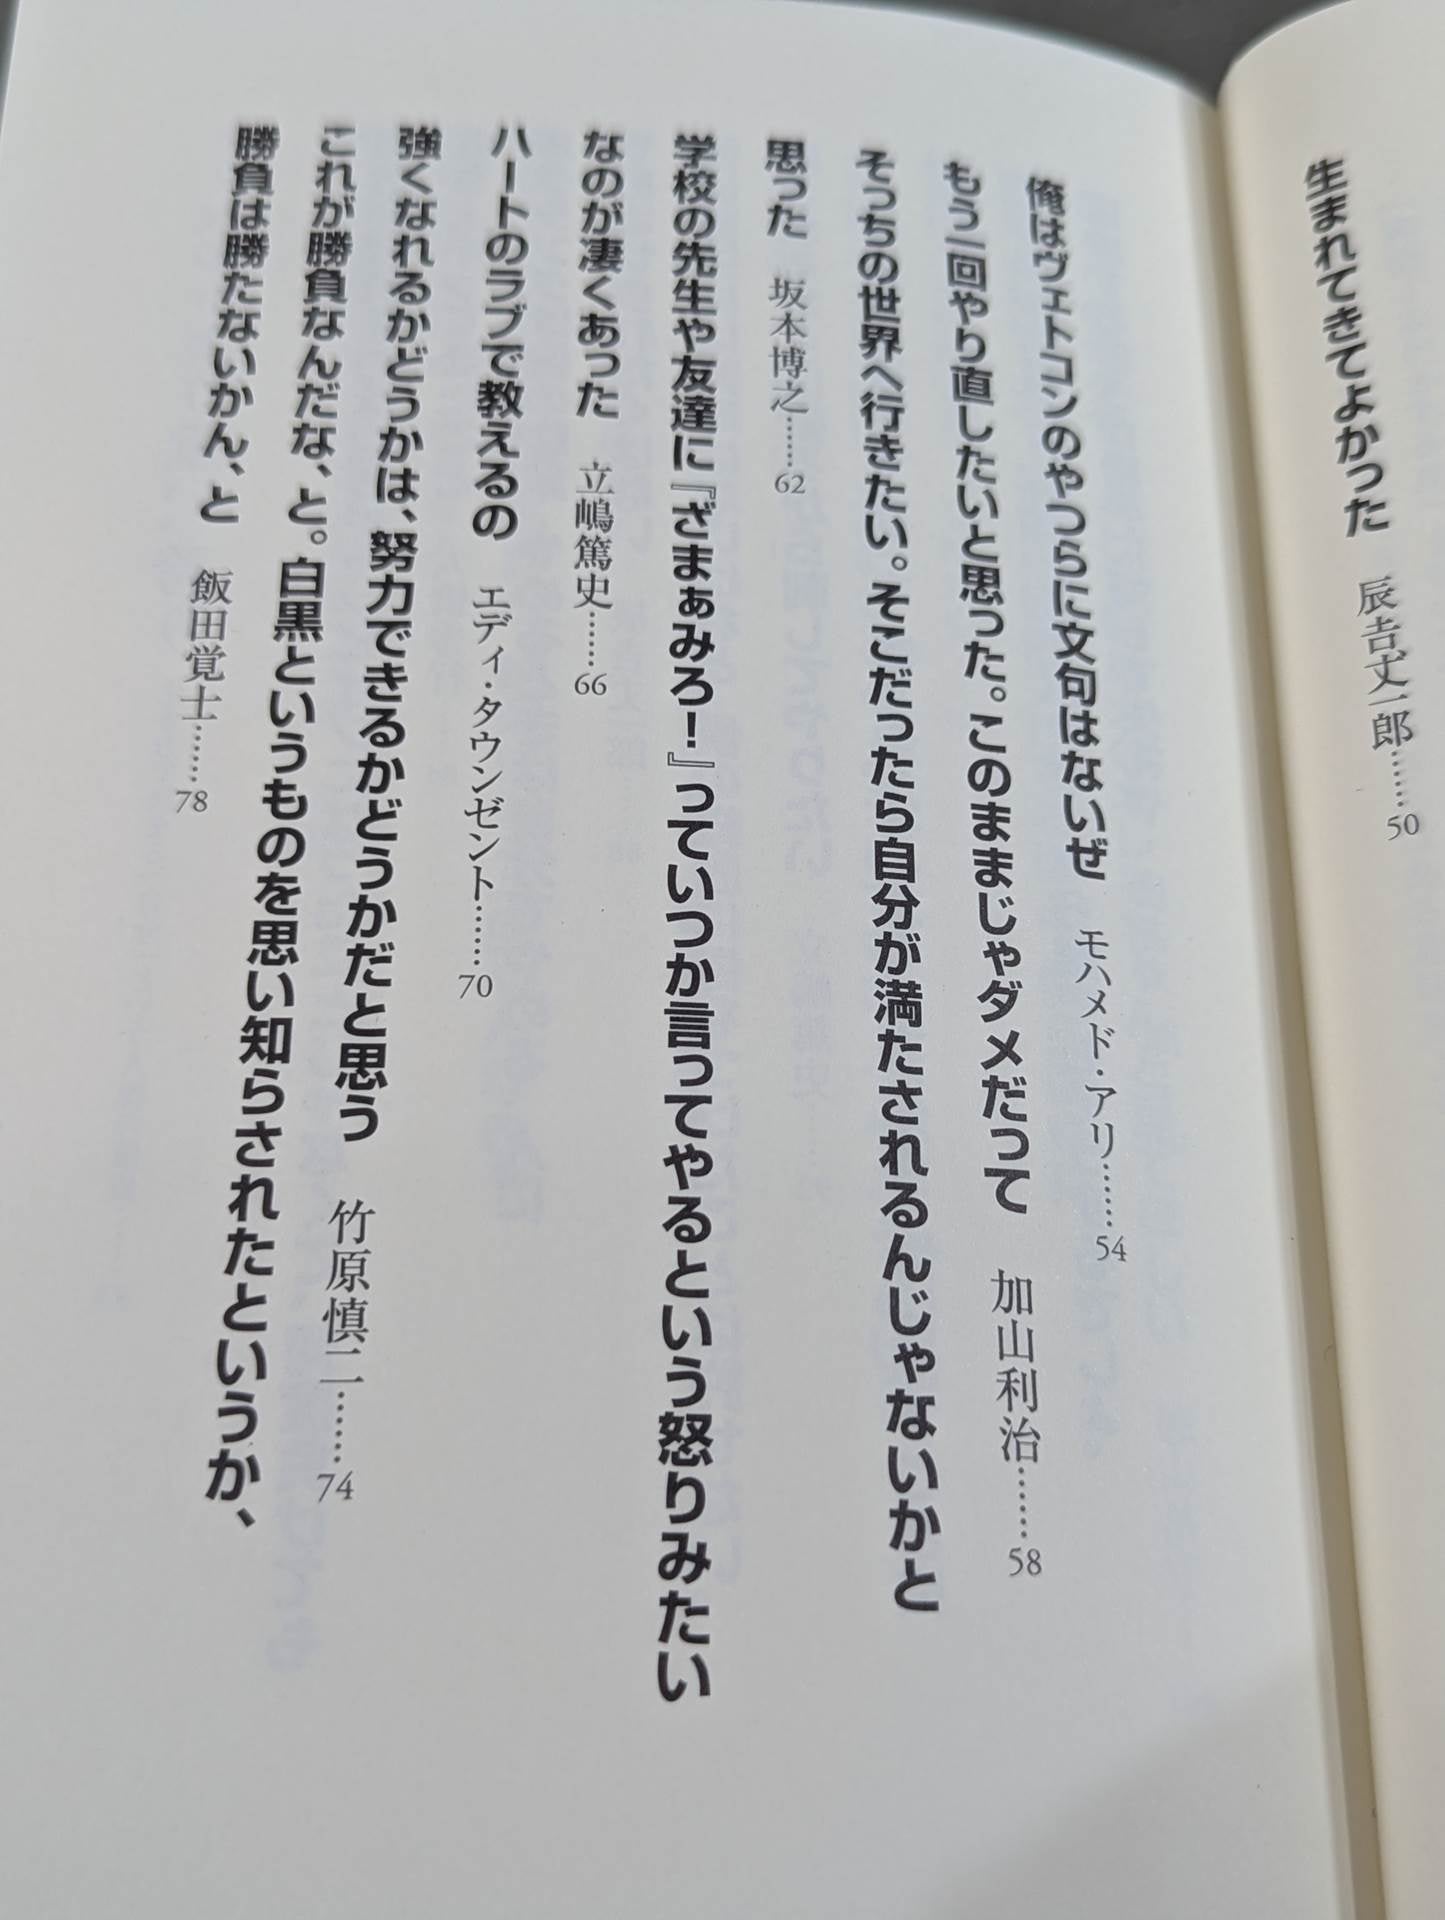 生まれてきてよかった　辰𠮷丈一郎……50
俺はヴェトコンのやつらに文句はないぜ　モハメド・アリ……54
もう一回やり直したいと思った。このままじゃダメだって　加山利治……58
そっちの世界へ行きたい。そこだったら自分が満たされるんじゃないかと
思った　坂本博之……62
学校の先生や友達に『ざまぁみろ！』っていつか言ってやるという怒りみたい
なのが凄くあった　立嶋篤史……66
ハートのラブで教えるの　エディ・タウンゼント……70
強くなれるかどうかは、努力できるかどうかだと思う　竹原慎二……74
これが勝負なんだな、と。白黒というものを思い知らされたというか、
勝負は勝たないかん、と　飯田覚士……78